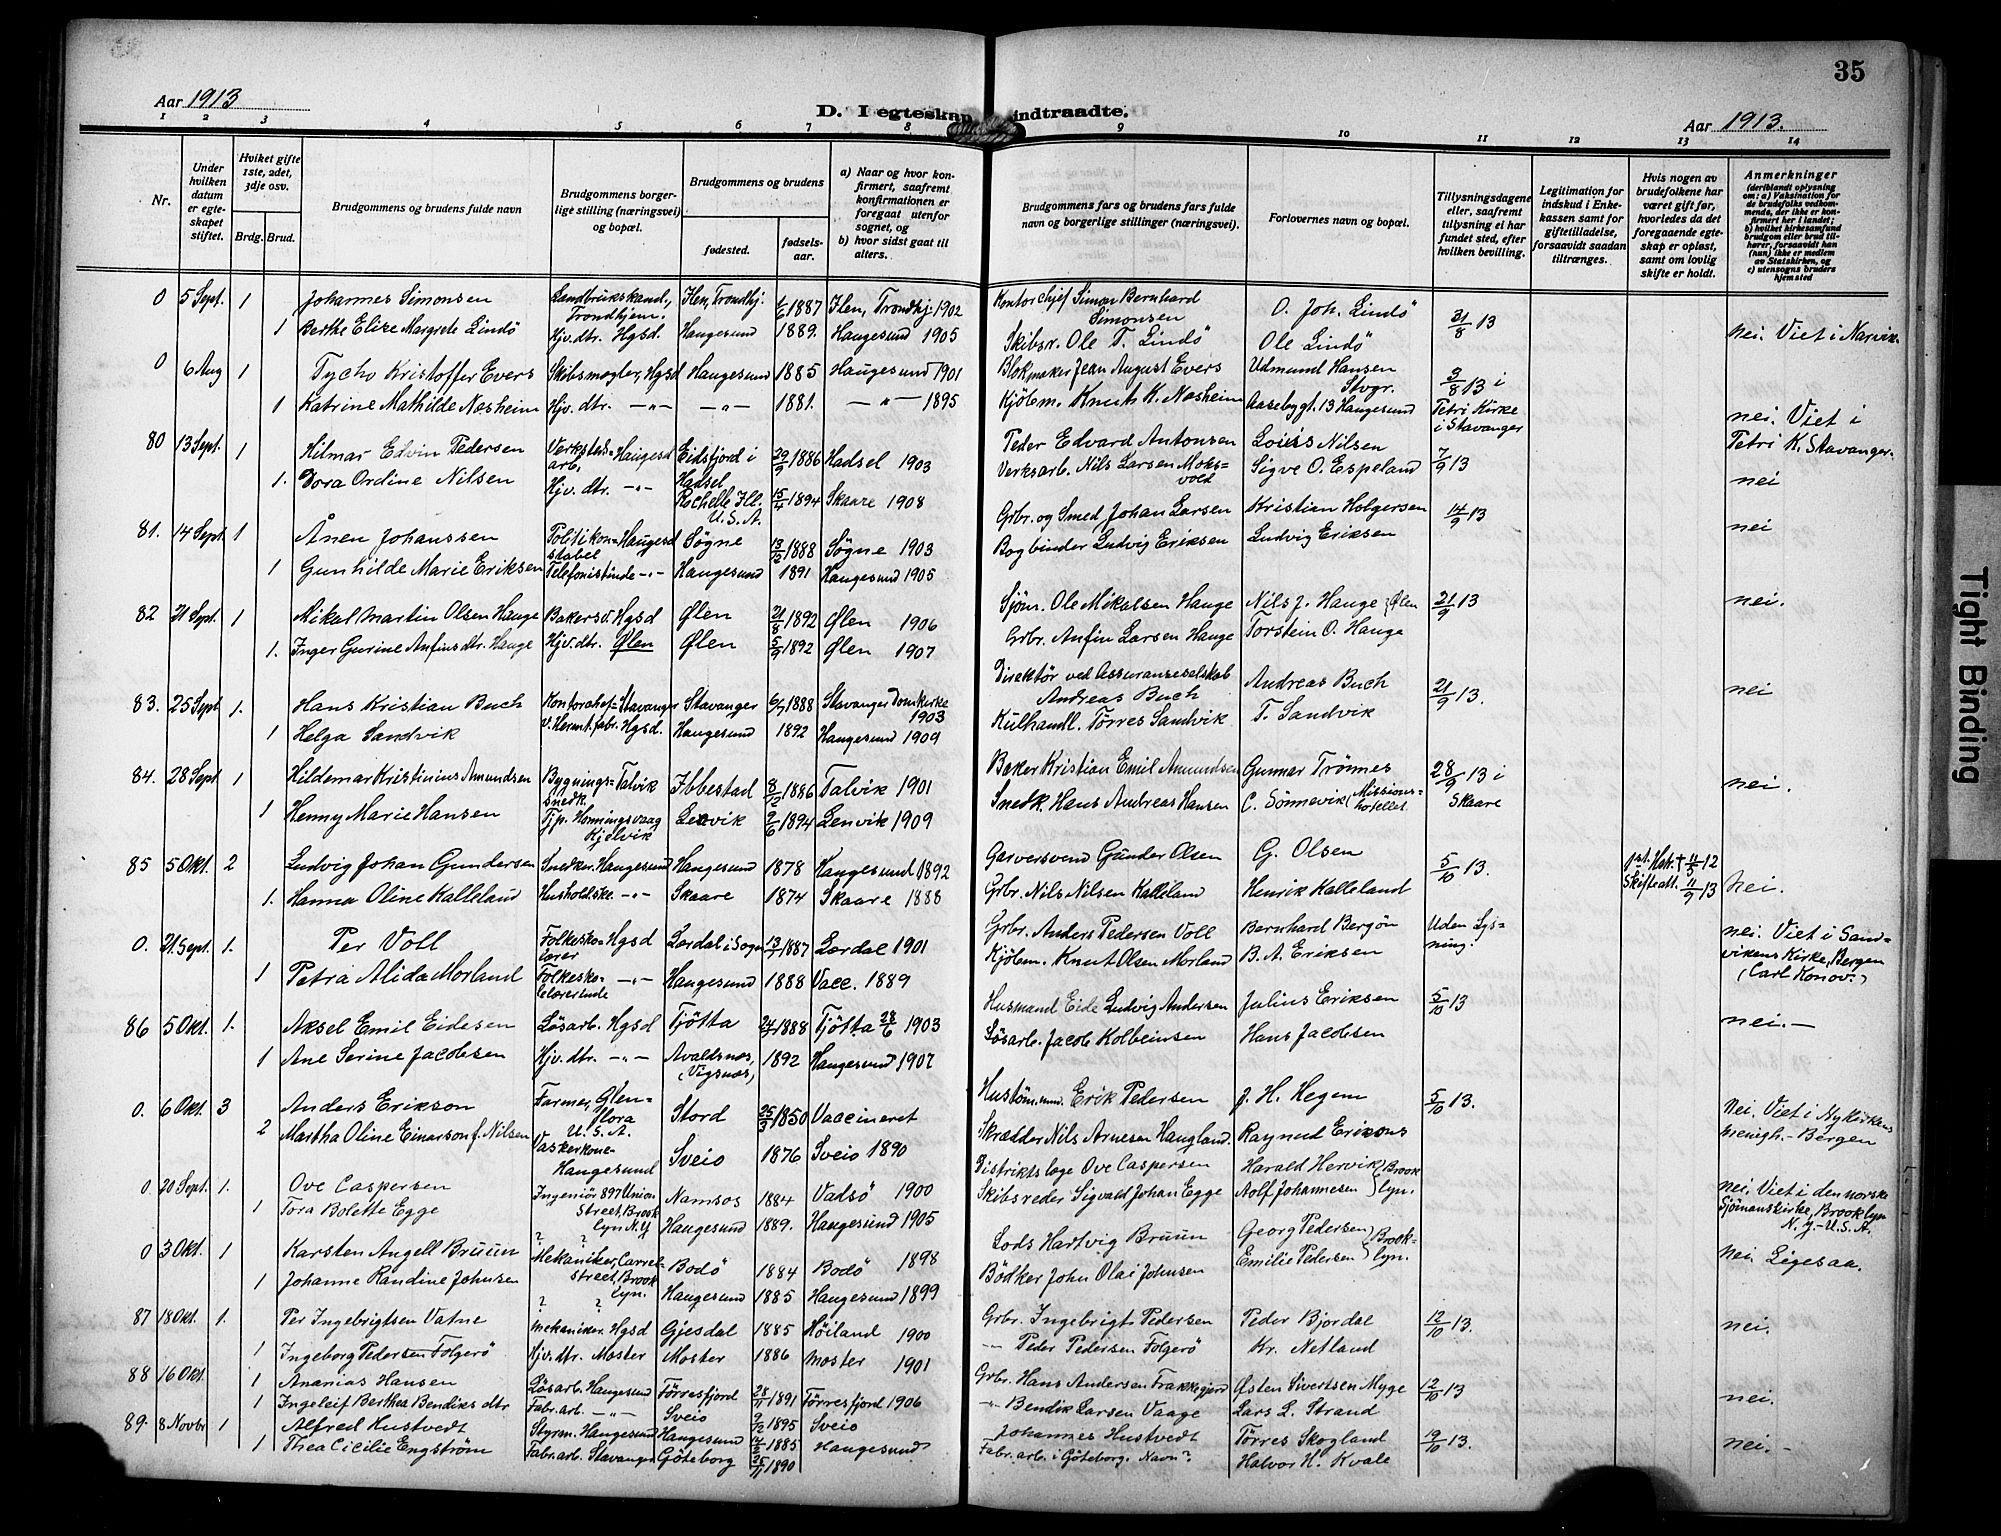 35
Aar 1913
D. I egteskap indtraadte.
Aar 1913.
1 2 3 4 5 6 7 8 9 10 11 12 13 14
Nr.
Under hvilken datum er egteskapet stiftet.
Hvilket gifte 1ste, 2det, 3dje osv.
Brdg. Brud.
Brudgommens og brudens fulde navn
Brudgommens borgerlige stilling (næringsvei) og bopæl.
Brudgommens og brudens
fødested.
fødselsaar.
a) Naar og hvor konfirmert, saafremt konfirmationen er foregaat utenfor sognet, og
b) hvor sidst gaat til alters.
Brudgommens fars og brudens fars fulde navn og borgerlige stillinger (næringsvei).
Forlovernes navn og bopæl.
Tillysningsdagene eller, saafremt tillysning ei har fundet sted, efter hvilken bevilling.
Legitimation for indskud i Enkekassen samt for giftetilladelse, forsaavidt saadan tiltrænges.
Hvis nogen av brudefolkene har været gift før, hvorledes da det foregaaende egteskap er opløst, samt om lovlig skifte er holdt.
Anmerkninger
(deriblandt oplysning om: a) Vaksination for de brudefolks vedkommende, der ikke er konfirmert her i landet;
b) hvilket kirkesamfund brudgom eller brud tilhører, forsaavidt han (hun) ikke er medlem av Statskirken, og
c) utensogns bruders hjemsted
0 5 Sept. 1 Johannes Simonsen Landbrukskand., Trondhjem. Ilen, Trondhj. 6/6 1887 Ilen, Trondhj. 1902 Kontorchef Simon Bernhard Simonsen O. Joh. Lindö 31/8 13 nei. Viet i Narvik.
1 Berthe Elize Margrete Lindö Hjv. dtr. Hgsd. Haugesund 1889. Haugesund 1905 Skibsr. Ole T. Lindö Ole Lindö
0 6 Aug 1 Tycho Kristoffer Evers Skibsmegler, Hgsd Haugesund 1885 Haugesund 1901 Blokmaker Jean August Evers Udmund Hansen Stvgr. 3/8 13 i Petri Kirke i Stavanger nei. Viet i Petri K. Stavanger.
1 Katrine Mathilde Nesheim Hjv. dtr. -"- -"- 1881. -"- 1895 Kjölem. Knut K. Nesheim Aasebygt. 13 Haugesund
80 13 Sept. 1 Hilmar Edvin Pedersen Verkstedsarb. Haugesd Eidsfjord i Hadsel 29/9 1886 Hadsel 1903 Peder Edvard Antonsen Louis Nilsen 7/9 13 nei
1. Dora Ordine Nilsen Hjv. dtr. -"- Rochelle Ill. U.S.A. 15/4 1894 Skaare 1908 Verksarb. Nils Larsen Moksvold Sigve O. Espeland
81. 14 Sept 1 Ånen Johanssen Politikonstabel Haugesd Søgne 13/12 1888 Søgne 1903 Grbr. og Smed Johan Larsen Kristian Holgersen 14/9 13 nei
1 Gunhilde Marie Eriksen Telefonistinde -"- Haugesund 1891 Haugesund 1905 Bogbinder Ludvig Eriksen Ludvig Eriksen
82 21 Sept. 1 Mikal Martin Olsen Hauge Bakersv. Hgsd Ølen 21/8 1892 Ølen 1906 Sjöm. Ole Mikalsen Hauge Nils J. Hauge } Ølen 21/9 13 nei.
1. Inger Gurine Anfinsdtr. Hauge Hjv. dtr. Ølen Ølen 5/9 1892 Ølen 1907 Grbr. Anfin Larsen Hauge Torstein O. Hauge
83. 25 Sept 1. Hans Kristian Buch Kontorchef Stavanger Stavanger 6/7 1888 Stavanger Domkirke 1903 Direktör ved Assuranseselskab Andreas Buch Andreas Buch 21/9 13. nei
1 Helga Sandvik v. Hermt. fabr. Hgsd. Haugesund 1892 Haugesund 1909 Kulhandl. Torres Sandvik T. Sandvik
84. 28 Sept. 1 Hildemar Kristinius Amundsen Bygningssnedk. Talvik Ibbestad 8/12 1886 Talvik 1901 Baker Kristian Emil Amundsen Gunnar Trönnes 28/9 13 i Skaare nei.
1 Henny Marie Hansen Tjp. Honningsvaag Kjelvik Lenvik 9/6 1894 Lenvik 1909 Snedk. Hans Andreas Hansen C. Sönnevik (Missionshotellet
85 5 Okt. 2 Ludvig Johan Gundersen Snedker. Haugesund Haugesund 1878 Haugesund 1892 Garversvend Gunder Olsen G. Olsen 5/10 13. Skifteatt. 11/9 13 nei.
1. Hanna Oline Kalleland Husholdske. -"- Skaare 1874 Skaare 1888 Grbr. Nils Nilsen Kalleland Henrik Kalleland
0. 21 Sept. 1. Per Voll Folkeskolærer Hgsd Lærdal i Sogn 13/7 1887 Lærdal 1901 Grbr. Anders Pedersen Voll Bernhard Bergön Uden Lysning. nei. Viet i Sandvikens Kirke, Bergen (Carl Konov.)
1 Petra Alida Morland Folkeskolelærerinde -"- Haugesund 1888 Vacc. 1889 Kjölem. Knut Olsen Morland B. A. Eriksen
86 5 Okt. 1. Aksel Emil Eidesen Løsarb. Hgsd Tjötta 24/7 1888 Tjötta 28/6 1903 Husmand Eide Ludvig Andersen Julius Eriksen 5/10 13 nei.-
1 Ane Serine Jacobsen Hjv. dtr. -"- Avaldsnes, (Vigsnes) 1892 Haugesund 1907 Løsarb. Jacob Kolbeinsen Hans Jacobsen
0. 6 Okt. 3 Anders Erikson Farmer, Glenflora U.S.A. Stord 25/3 1850 Vaccineret Hustöm.md. Erik Pedersen J. H. Hegem 5/10 13. Nei. Viet i Nykirkens menigh.- Bergen
2 Martha Oline Einarson f. Nilsen Vaskerkone Haugesund Sveio 1876 Sveio 1890 Skrædder Nils Arnesen Haugland. Raynud Erixons
0 20 Sept. 1. Ove Caspersen Ingeniör 897 Union Street, Brooklyn N.Y. Namsos 1884 Vadsö 1900 Distriktslæge Ove Caspersen Harald Hervik } Brooklyn. nei. Viet i den norske Sjömanskirke, Brooklyn N.Y.-U.S.A.
1 Tora Bolette Egge ? ? Haugesund 1889. Haugesund 1905 Skibsreder Sigvald Johan Egge Aolf Johannesen
0 3 Okt. 1 Karsten Angell Bruun Mekaniker, Carrelstreet, Brooklyn. Bodö 1884 Bodö 1898 Lods Hartvig Bruun Georg Pedersen } Brooklyn. nei. Ligesaa.
1 Johanne Randine Johnsen ? ? Haugesund 1885 Haugesund 1899 Bödker John Olai Johnsen Emilie Pedersen
87 18 Okt. 1. Per Ingebrigtsen Vatne Mekaniker. Hgsd Gjesdal 1885 Høiland 1900 Grbr. Ingebrigt Pedersen Peder Bjordal 12/10 13. nei.
1 Ingeborg Pedersen Folgerö Hjv. dtr. Moster Moster 1886 Moster 1901 -"- Peder Pedersen Folgerö Kr. Netland
88 16 Okt. 1 Ananias Hansen Løsarb. Haugesund Førresfjord 28/11 1891 Førresfjord 1906 Grbr. Hans Andersen Frakkagjerd Østen Sivertsen Myge 12/10 13 nei.
1 Ingeleif Berthea Bendiksdtr Fabr.arb. -"- Sveio 9/2 1895 Sveio -"- Bendik Larsen Vaage Lars L. Strand
89. 8 Novbr 1 Alfred Hustvedt Styrm. Haugesund Haugesund 14/2 1885 Haugesund Johannes Hustvedt Törres Skogland 19/10 13. nei.-
1 Thea Cicilie Engström Fabr. arb. Stavanger Göteborg 25/11 1890 Fabr. arb. i Göteborg. Navn? Halvor H. Kvale
Tight Binding